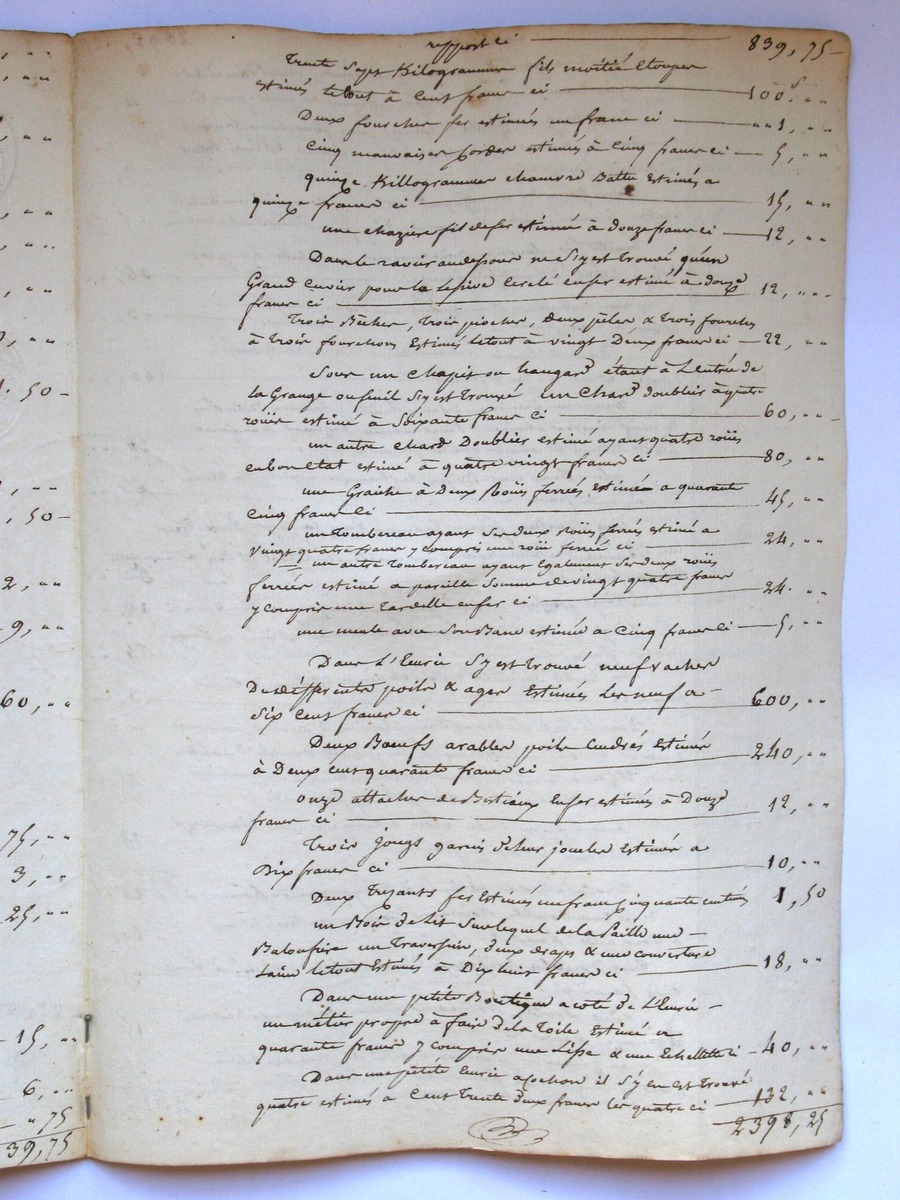 rapport ci 839, 75
Trente Sept Kilogrammes fils moitié Etoupes
estimés letout à Cent francs ci 100, ""
Deux fourches fer estimées un franc ci ""1, ""
Cinq mauvaises Cordes estimés à Cinq francs ci 5, ""
quinze Killogrammes chanvre Battu Estimés a
quinze francs ci 15, ""
une chazière fil de fer estimée à douze francs ci 12, ""
Dans le ravoir audessous ne S'y est trouvé qu'un
Grand Cuvier pour la Lessive Cerclé enfer estimé à douze
francs ci 12, ""
Trois Bêches, Trois pioches, Deux pèles & Trois fourches
à Trois fourchons Estimés letout à vingt Deux francs ci 22, ""
Sous un Chapit ou hangard étant à L'entrée de
la Grange ou fenil S'y est trouvé un Chard doublier à quatre
roües estimé à Soixante francs Ci 60, ""
un autre Chard Doublier estimé ayant quatre roües
en bon Etat estimé à quatre vingt francs ci 80, ""
une à Deux Roües ferrées Estimée a quarante
Cinq francs Ci 45, ""
un Tombereau ayant Ses deux Roües ferrées estimé a
vingt quatre francs y compris une roüe ferrée ci 24, ""
un autre Tombereau ayant Egalement Ses deux roües
ferrées estimé a pareille Somme de vingt quatre francs
y compris une enfer ci 24. ""
une meule avec Son Banc estimée a Cinq francs Ci 5, ""
Dans L'Ecurie S'y est trouvé neuf vaches
De différents poils & ages Estimées Les neuf a
Six Cent francs ci 600, ""
Deux Bœufs arables poils Cendrés Estimés
à Deux cent quarante francs ci 240, ""
onze attaches de Bestiaux Enfer estimées à Douze
francs ci 12, ""
Trois jougs garnis de leur joucles Estimés a
Dix francs ci 10, ""
Deux Trezants fer Estimés un franc Cinquante centimes 1, 50
un Bois de Lit Surlequel de la Paille une
Baloufière un Traversin, deux draps & une couverture
laine letout Estimés à Dix huit francs ci 18, ""
Dans une petite Boutique a coté de L'Ecurie
un métier propre à faire de la Toile Estimé a
quarante francs y compris une Lisse & une Echellette ci 40, ""
Dans une petite Ecurie a Cochons il S'y en est Trouvé
quatre estimés à Cent Trente deux francs les quatre ci 132, ""
2398, 25
1. 50
, 50
2, ""
9, ""
60, ""
75, ""
3, ""
25, ""
15, ""
6, ""
" 75
39, 75